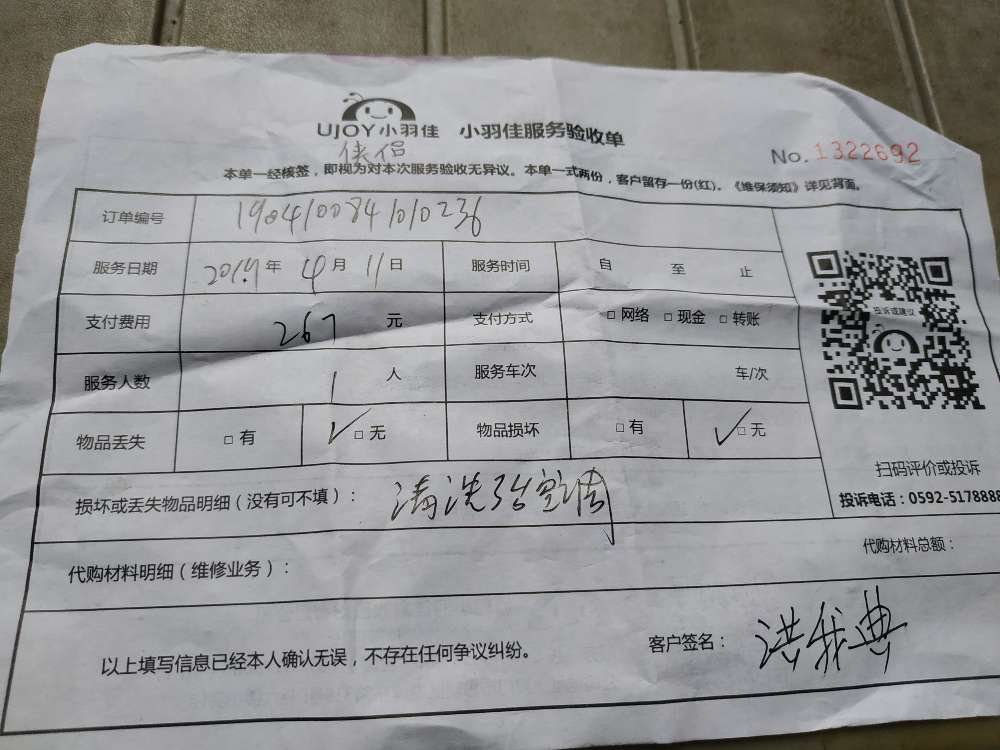 UJOY小羽佳 小羽佳服务验收单
No. 1322692
本单一经核签，即视为对本次服务验收无异议。本单一式两份，客户留存一份(红)。《维保须知》详见背面。
订单编号 19041008401010236
服务日期 2019年 4月 11日 服务时间 自 至 止
支付费用 267 元 支付方式 □网络 □现金 □转账
服务人数 1 人 服务车次 车/次
物品丢失 □有 ✓□无 物品损坏 □有 ✓□无
投诉或建议
扫码评价或投诉
投诉电话：0592-5178888
损坏或丢失物品明细（没有可不填）： 清洗3台空调
代购材料明细（维修业务）： 代购材料总额：
以上填写信息已经本人确认无误，不存在任何争议纠纷。 客户签名： 洪我典